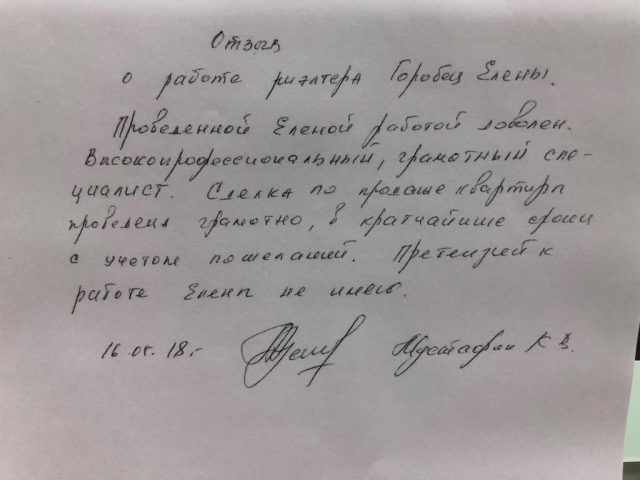 Отзыв
о работе риэлтера Горобец Елены.
Проведенной Еленой работой доволен.
Високопрофессиональный, грамотный спе-
циалист. Сделка по продаже квартиры
проведена грамотно, в кратчайшие сроки
с учетом пожеланий. Претензий к
работе Елены не имею.
16. 18г
К В.